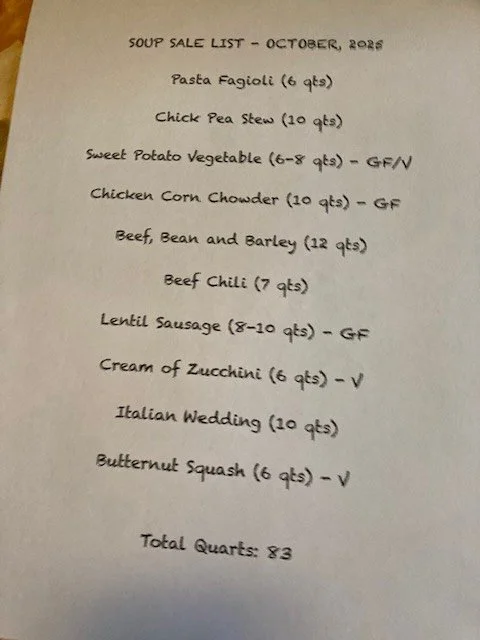 SOUP SALE LIST - OCTOBER, 2025
Pasta Fagioli (6 qts)
Chick Pea Stew (10 qts)
Sweet Potato Vegetable (6-8 qts) - GF/V
Chicken Corn Chowder (10 qts) - GF
Beef, Bean and Barley (12 qts)
Beef Chili (7 qts)
Lentil Sausage (8-10 qts) - GF
Cream of Zucchini (6 qts) - V
Italian Wedding (10 qts)
Butternut Squash (6 qts) - V
Total Quarts: 83